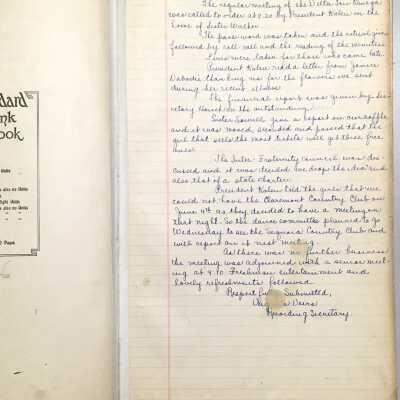 dard
nk
ook
Pages
The regular meeting of the Delta
was called to order at 7:30 by President Kolen in the
home of Sister Walker.
The pass word was taken and the ritual given
followed by roll call and the reading of the minutes.
Fines were taken for those who came late.
President Kolen read a letter from Janice
thanking us for the flowers we sent
during her recent illness.
The financial report was given by Sec-
retary on the outstanding.
Sister Sowell gave a report on our raffle
and it was moved, seconded and passed that the
girl that sells the most tickets will get three free
The Inter-Fraternity Council was dis-
cussed and it was decided we drop the idea and
also that of a state chapter.
President Kolen told the girls that we
could not have the Claremont Country Club on
June 4th as they decided to have a meeting on
that night. So the dance committee planned to go
Wednesday to see the Sequoia Country Club and
will report on it next meeting.
As there was no further business
the meeting was adjourned with a senior meet-
ing at 9:10. Freshman entertainment and
lovely refreshments followed.
Respectfully Submitted,
Recording Secretary.